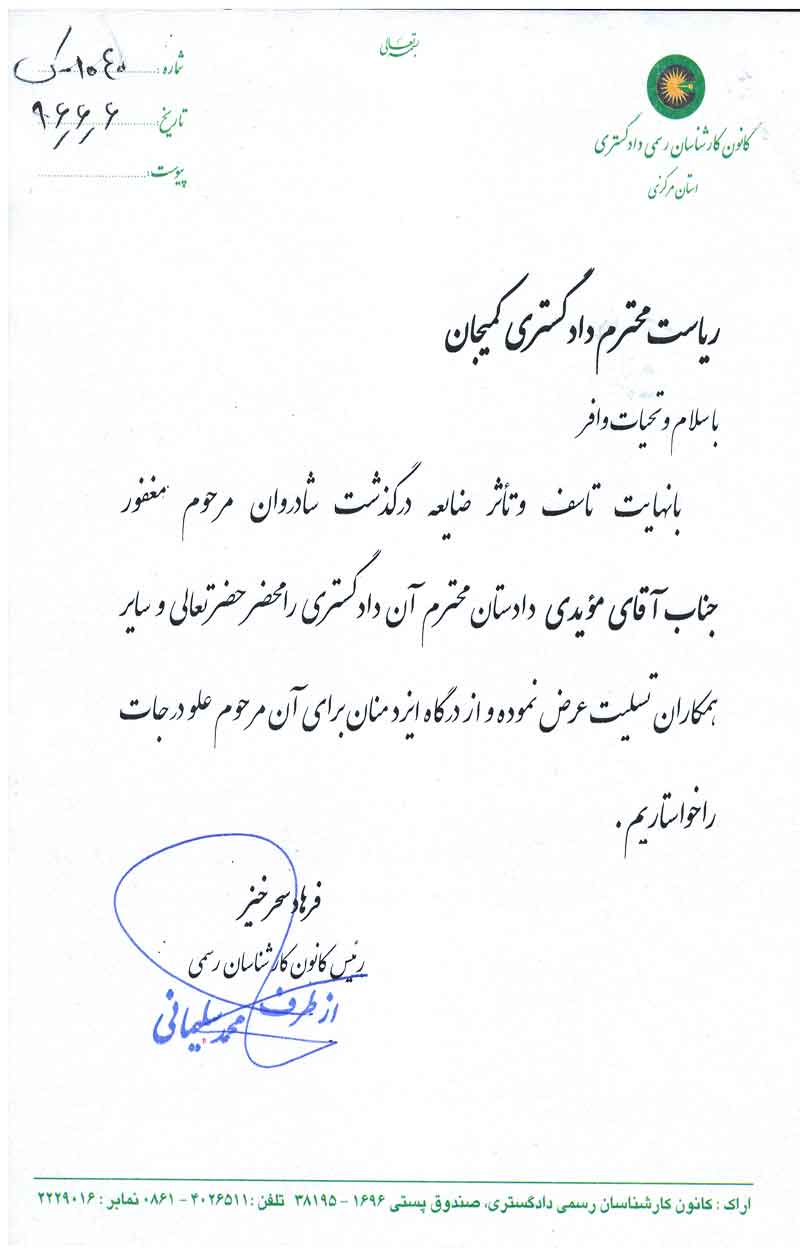 بسمه تعالی
کانون کارشناسان رسمی دادگستری
استان مرکزی
شماره :
تاریخ: ۹۰/۶/۶
پیوست:
ریاست محترم دادگستری کمیجان
با سلام و تحیات وافر
با نهایت تاسف و تأثر ضایعه درگذشت شادروان مرحوم مغفور
جناب آقای مؤیدی دادستان محترم آن دادگستری را محضر حضرتعالی و سایر
همکاران تسلیت عرض نموده و از درگاه ایزد منان برای آن مرحوم علو درجات
را خواستاریم .
فرهاد سحرخیز
رئیس کانون کارشناسان رسمی
از طرف
محمد سلیمانی
اراک : کانون کارشناسان رسمی دادگستری، صندوق پستی ۱۶۹۶ - ۳۸۱۹۵ تلفن : ۴۰۲۶۵۱۱ - ۰۸۶۱ نمابر : ۲۲۲۹۰۱۶